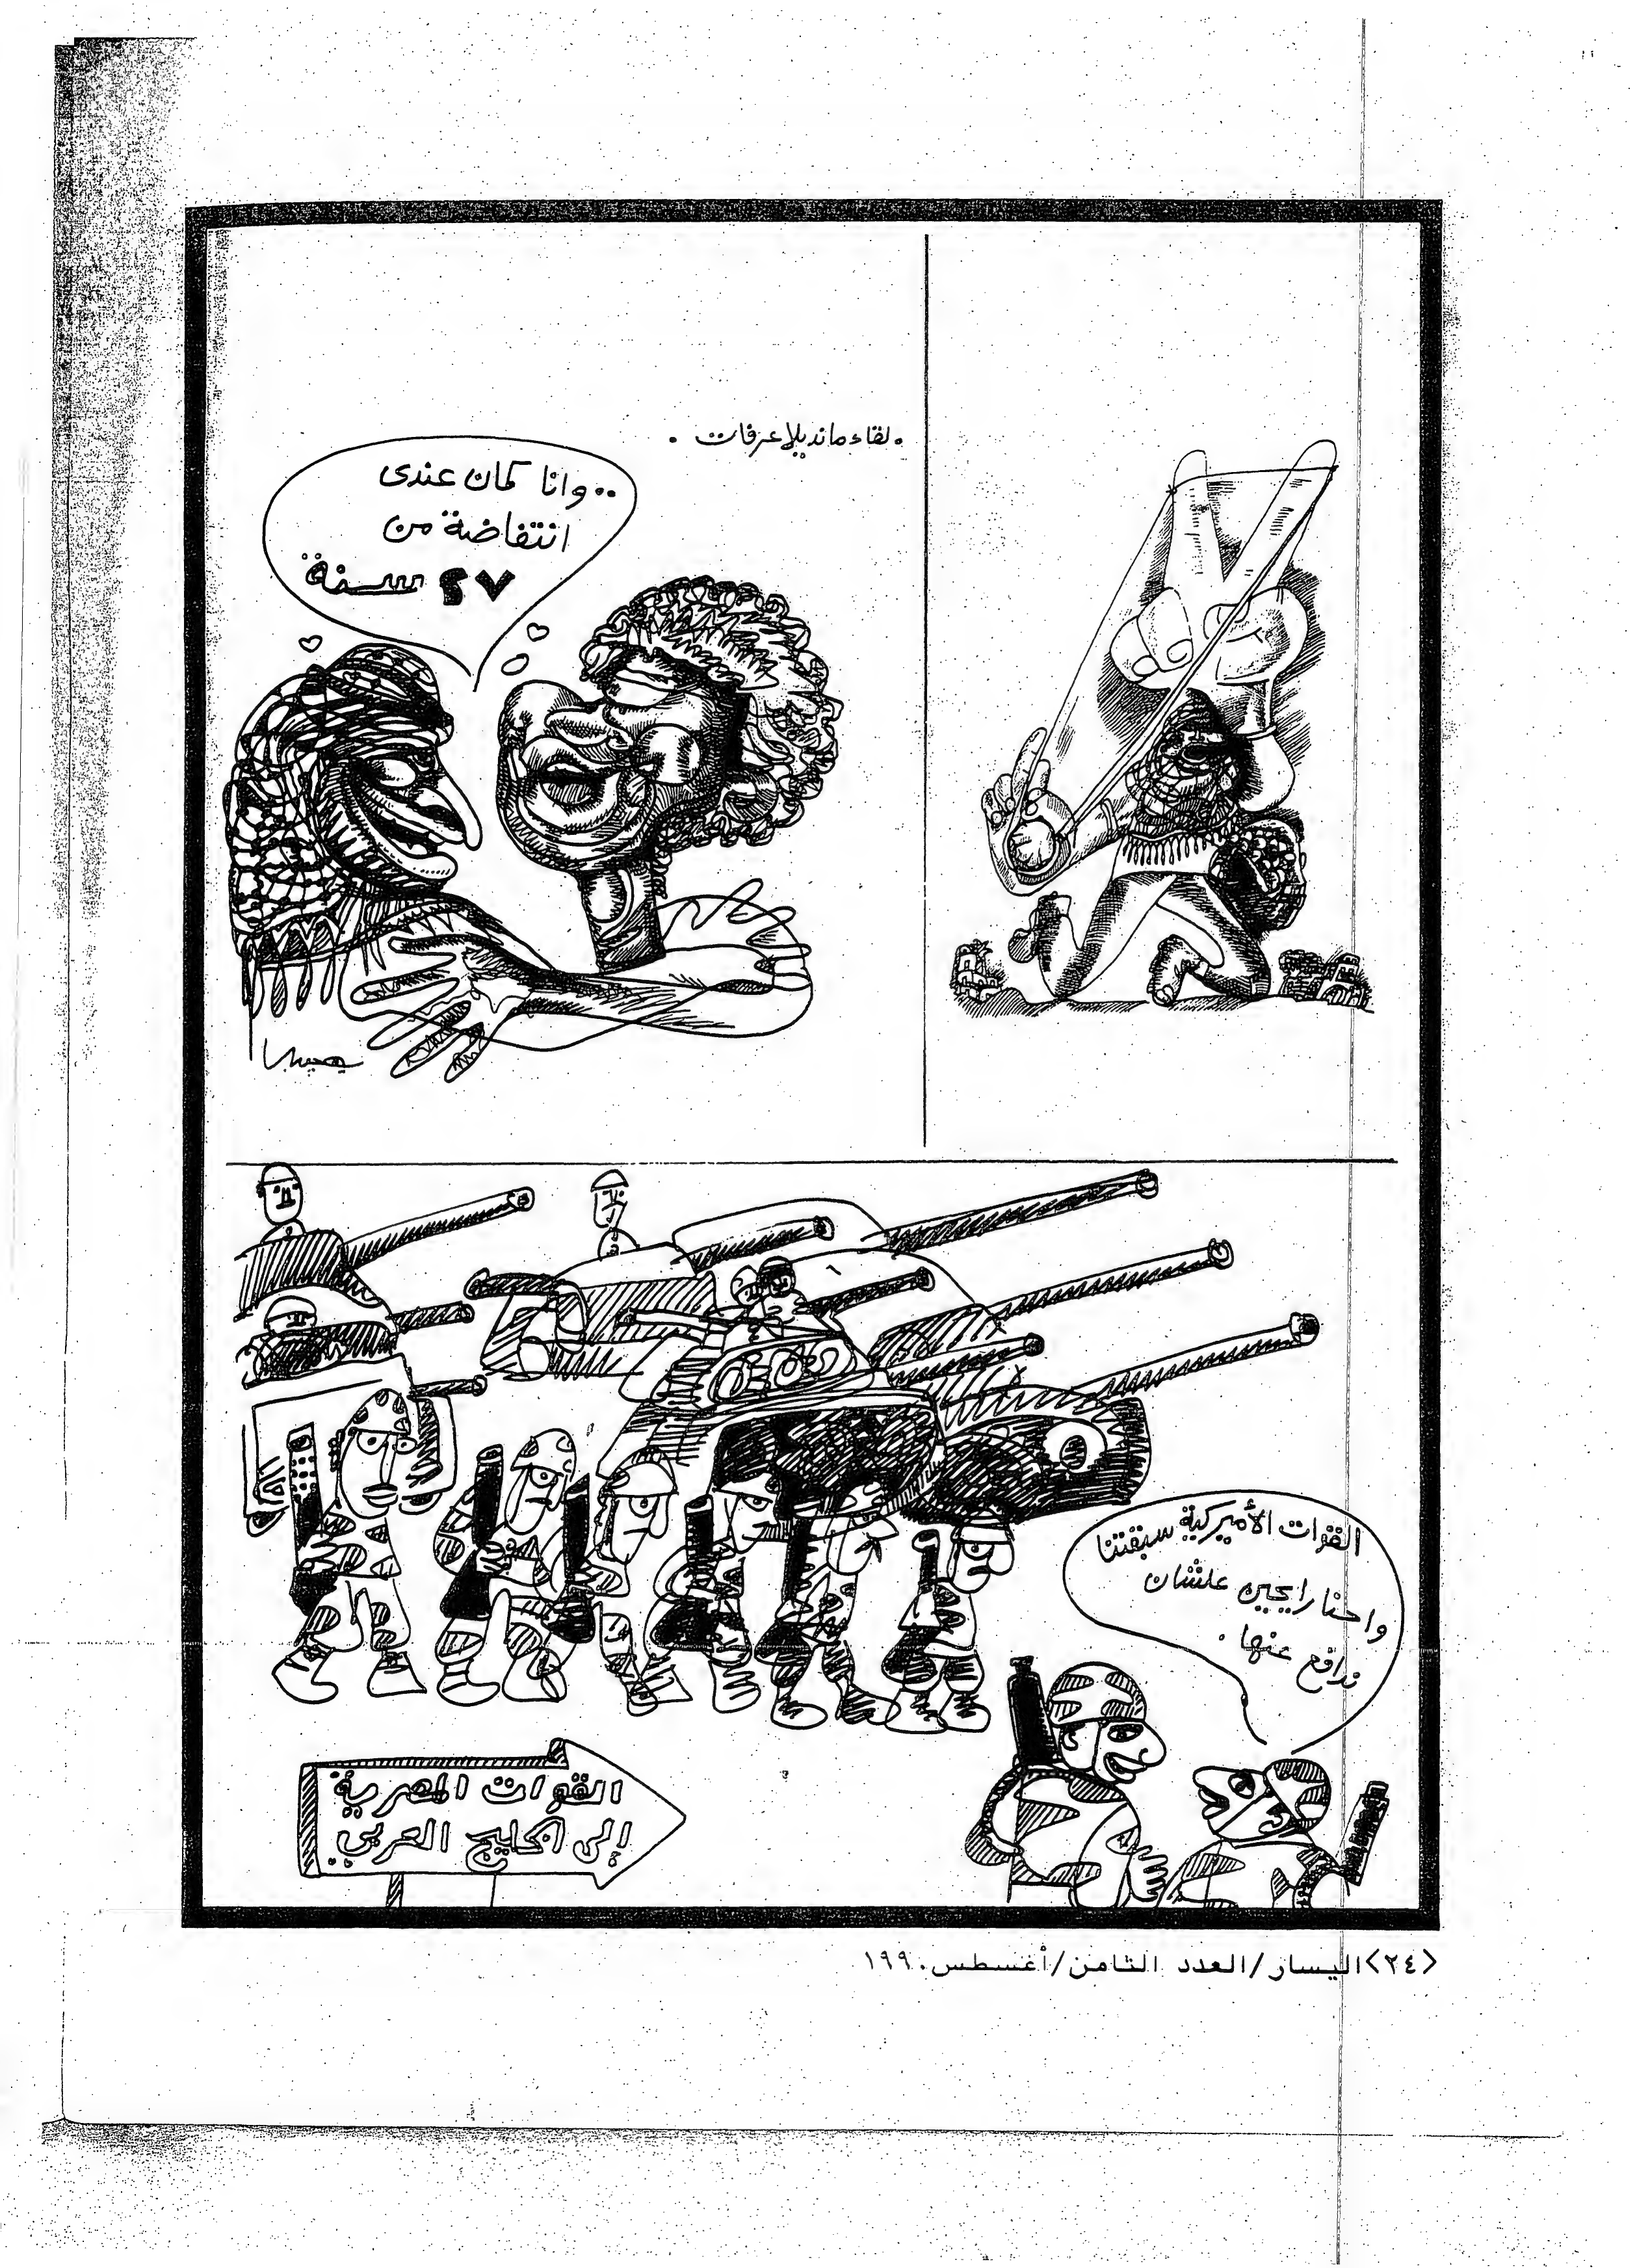 . لقاء مانديلا عرفات .
..وانا كمان عندى
انتفاضة من
٢٧ سنة
القوات الأميركية سبقتنا
واحنا رايحين علشان
ندافع عنها .
القوات المصرية
إلى الخليج العربى
<٢٤>اليسار/العدد الثامن/أغسطس١٩٩٠